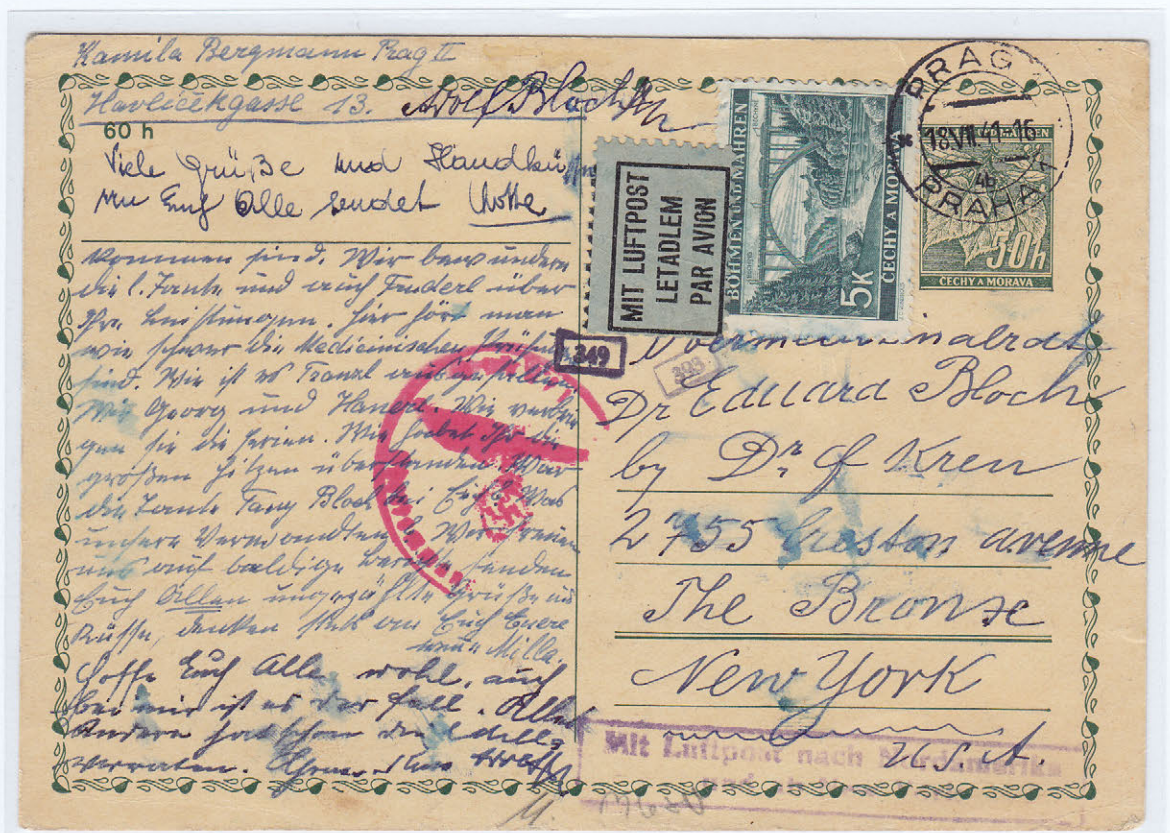 Kamila Bergmann Prag II
Havličekgasse 13.
Adolf Bloch
60 h
Viele Grüße und Handküsse
an Euch Alle sendet
kommen sind. Wir bewundern
die l. Tante und auch Truderl über
Ihre Leistungen. Hier hört man
wie schwer die Medicinischen Prüfungen
sind. Wie ist es Franzl ausgefallen,
Wie Georg und Hannerl. Wie verbrin-
gen sie die Ferien. Wie habet Ihr die
großen Hitzen überstanden. War
die Tante Fany Bloch bei Euch? Was
unsere Verwandten? Wir freuen
uns auf baldige Berichte senden
Euch Allen ungezählte Grüße und
Küsse, denken stets an Euch Euere
Milla.
Hoffe Euch Alle wohl, auch
bei mir ist es der Fall. Alles
Andere hat schon die
verraten.
MIT LUFTPOST
LETADLEM
PAR AVION
BÖHMEN UND MÄHREN
ČECHY A MORAVA
5K
PRAG
18.VII.41-16
46
PRAHA
50h
ČECHY A MORAVA
349
393
Obermedizinalrat
Dr Eduard Bloch
by Dr. J Kren
2755 Creston avenue
The Bronx
New York
U.S.A.
Mit Luftpost nach Nordamerika
und